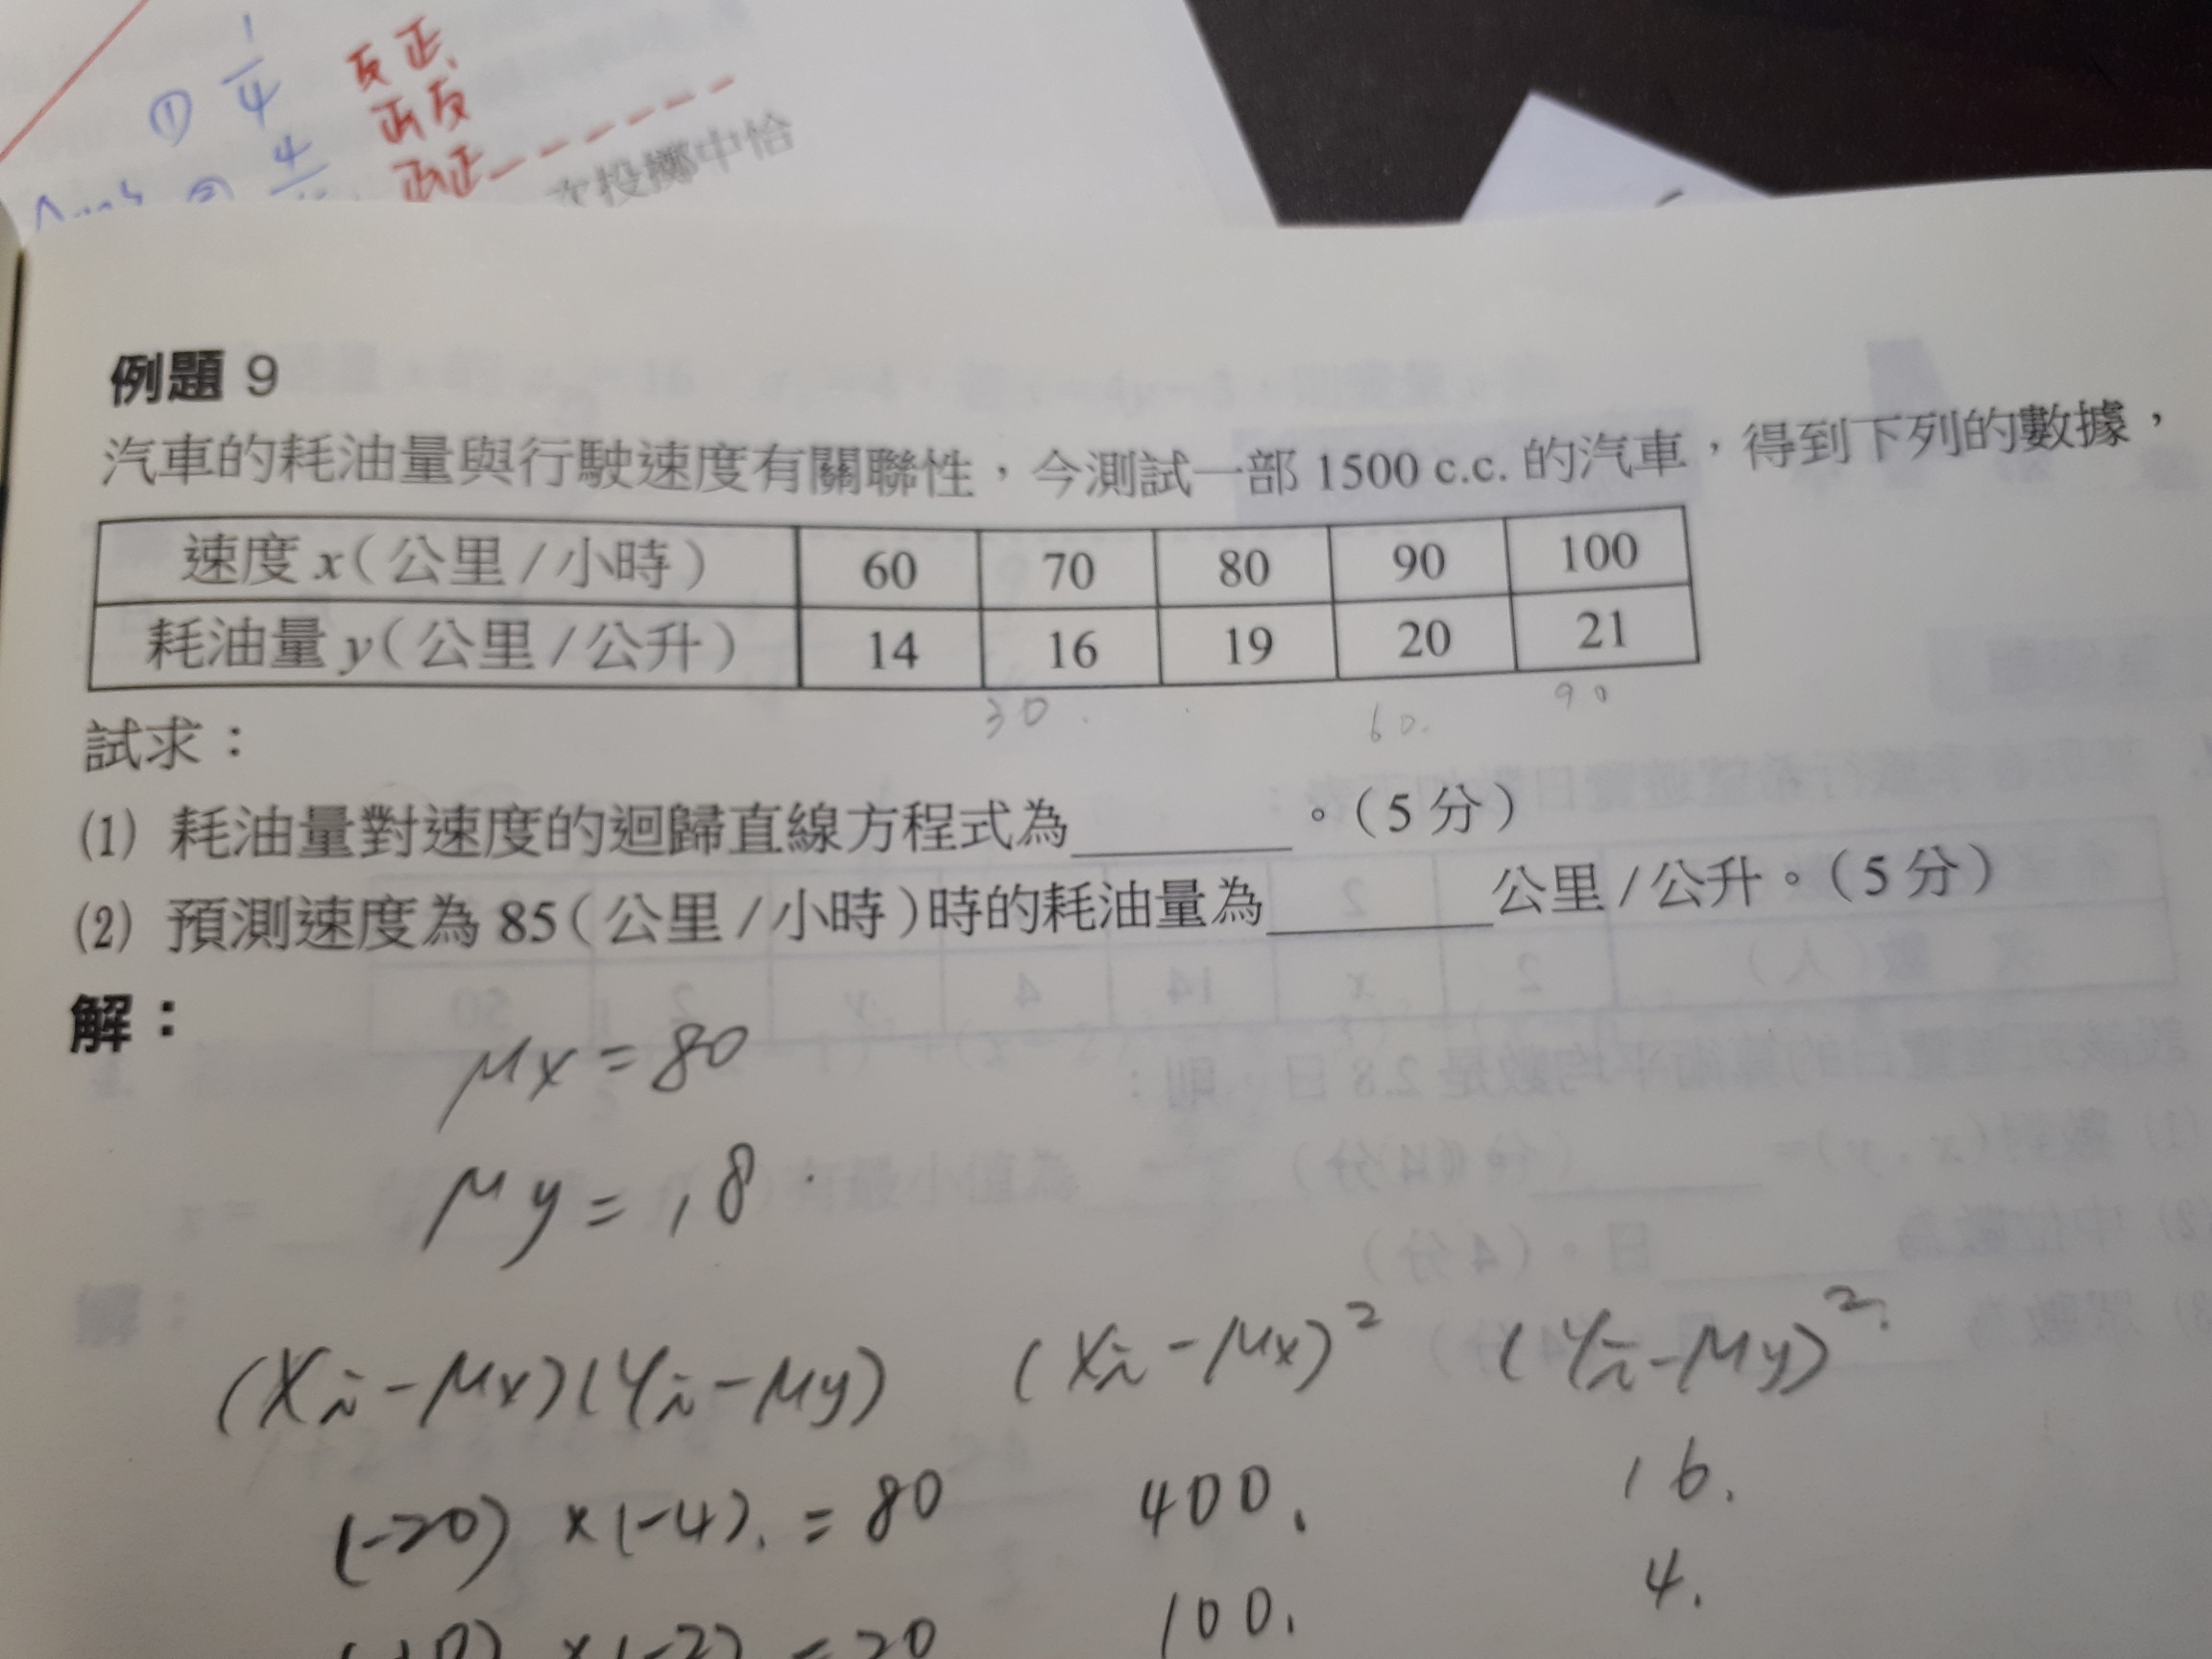 ① 1/4 反正
正反
正正
② 4
次投擲中恰
例題 9
汽車的耗油量與行駛速度有關聯性，今測試一部 1500 c.c. 的汽車，得到下列的數據，
速度 x（公里/小時） 60 70 80 90 100
耗油量 y（公里/公升） 14 16 19 20 21
30. 60. 90
試求：
(1) 耗油量對速度的迴歸直線方程式為________。（5 分）
(2) 預測速度為 85（公里/小時）時的耗油量為________公里/公升。（5 分）
解：
μx = 80
μy = 18
(Xi - μx)(Yi - μy) (Xi - μx)² (Yi - μy)²
(-20) × (-4) = 80 400. 16.
(-10) × (-2) = 20 100. 4.